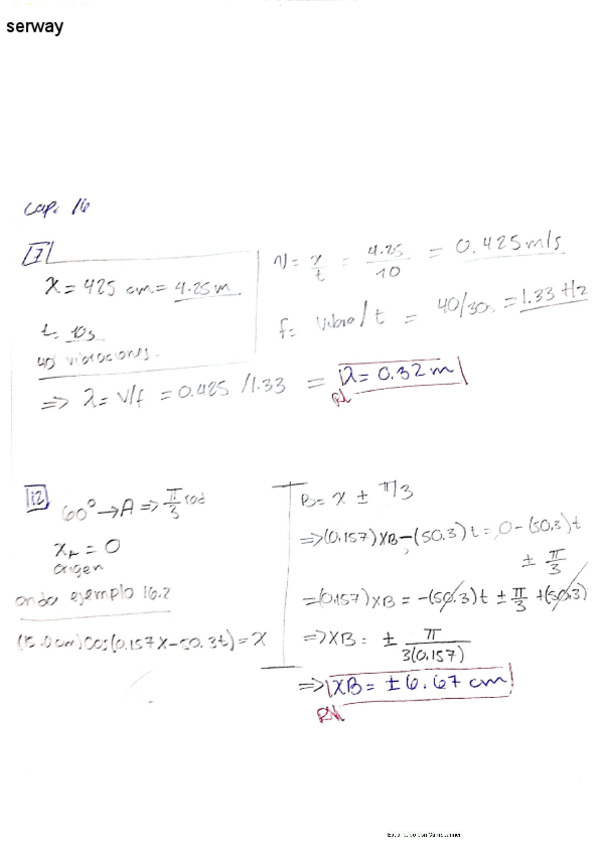 serway
cap. 16
7
x = 425 cm = 4.25 m
t = 10s
40 vibraciones.
v = x/t = 4.25/10 = 0.425 m/s
f = vibra/t = 40/30s = 1.33 Hz
⇒ λ = v/f = 0.425 / 1.33 = λ = 0.32 m
R//
12
60° → A ⇒ π/3 rad
= 0
origen
onda ejemplo 16.2
(15.0cm)Cos(0.157x-50.3t) = x
B = x ± π/3
⇒ (0.157)XB - (50.3)t = 0 - (50.3)t ± π/3
= (0.157)XB = -(50.3)t ± π/3 + (50.3)
⇒ XB = ± π/3(0.157)
⇒ XB = ± 6.67 cm
R//